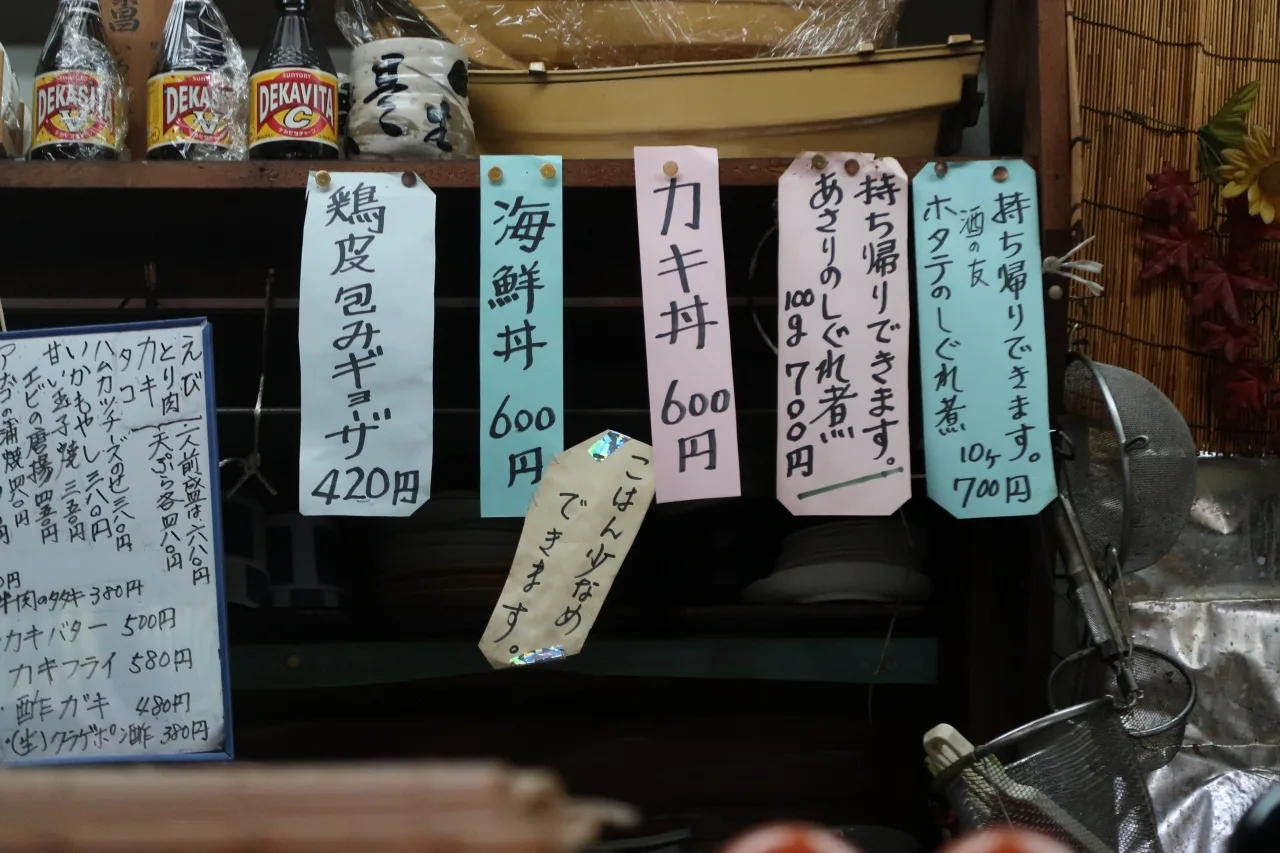 DEKAVITA
C
SUNTORY
DEKAVITA
C
鶏皮包みギョーザ
420円
海鮮丼
600円
カキ丼
600円
持ち帰りできます。
あさりのしぐれ煮
100g 700円
持ち帰りできます。
酒の友
ホタテのしぐれ煮
10ヶ
700円
ごはん少なめ
できます。
えび
とり肉
カキ
タコ
一人前盛は六八〇円
天ぷら各四八〇円
ハムカツチーズのせ 三八〇円
いかもやし 三八〇円
甘い玉子焼 三五〇円
エビの唐揚 四五〇円
カキバター 500円
カキフライ 580円
酢ガキ 480円
(生)クラゲポン酢 380円